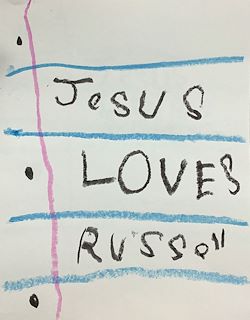 JeSUS
LOVES
RUSSell